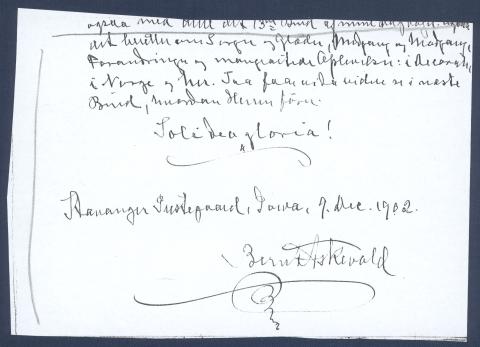 ogsaa med dette det 13de Bind af mine
det om Sorger og Glæder, Medgang og Modgang,
Forandringer og mangeartede Oplevelser: i Decorah,
i Norge og her. Saa faar vi da videre se i næste
Bind, hvordan Herren fører.
Soli deo gloria!
Stavanger Prestegaard, Iowa, 7. Dec. 1902.
Bernt Askevold